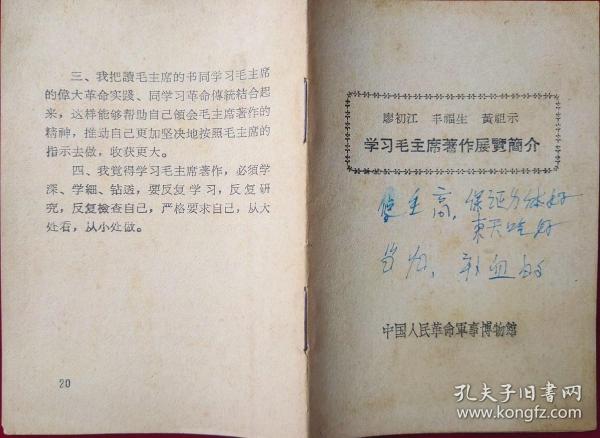 三、我把讀毛主席的书同学习毛主席
的偉大革命实践、同学习革命傳統結合起
来，这样能够帮助自己領会毛主席著作的
精神，推动自己更加坚决地按照毛主席的
指示去做，收获更大。
四、我觉得学习毛主席著作，必須学
深、学細、钻透，要反复学习，反复研
究，反复檢查自己，严格要求自己，从大
处看，从小处做。
20
廖初江 丰福生 黃祖示
学习毛主席著作展覽簡介
高，保证身体好
当归，补血的
中国人民革命軍事博物館
孔夫子旧书网
www.kongfz.com